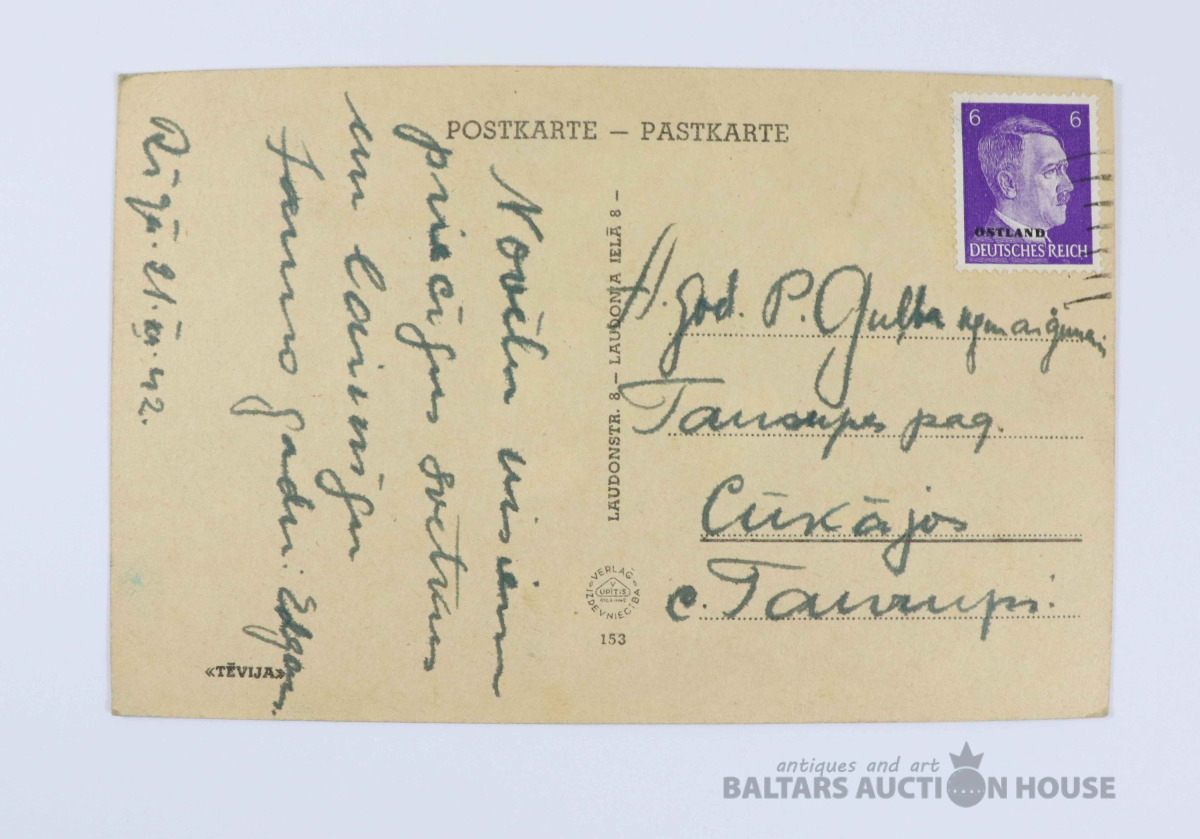 POSTKARTE — PASTKARTE
6 6
OSTLAND
DEUTSCHES REICH
Novēlu visiem
priecīgus svētkus
un laimīgu
Jauno gadu: Edgars.
Rīgā. 21.XII.42.
LAUDONSTR. 8 — LAUDONJA IELĀ 8 —
A. god. P. Gulba
Taurupes pag.
Cūkājos
c. Taurupi.
VERLAG
V
UPĪTIS
IZDEVNIECĪBA
153
«TĒVIJA»
antiques and art
BALTARS AUCTION HOUSE